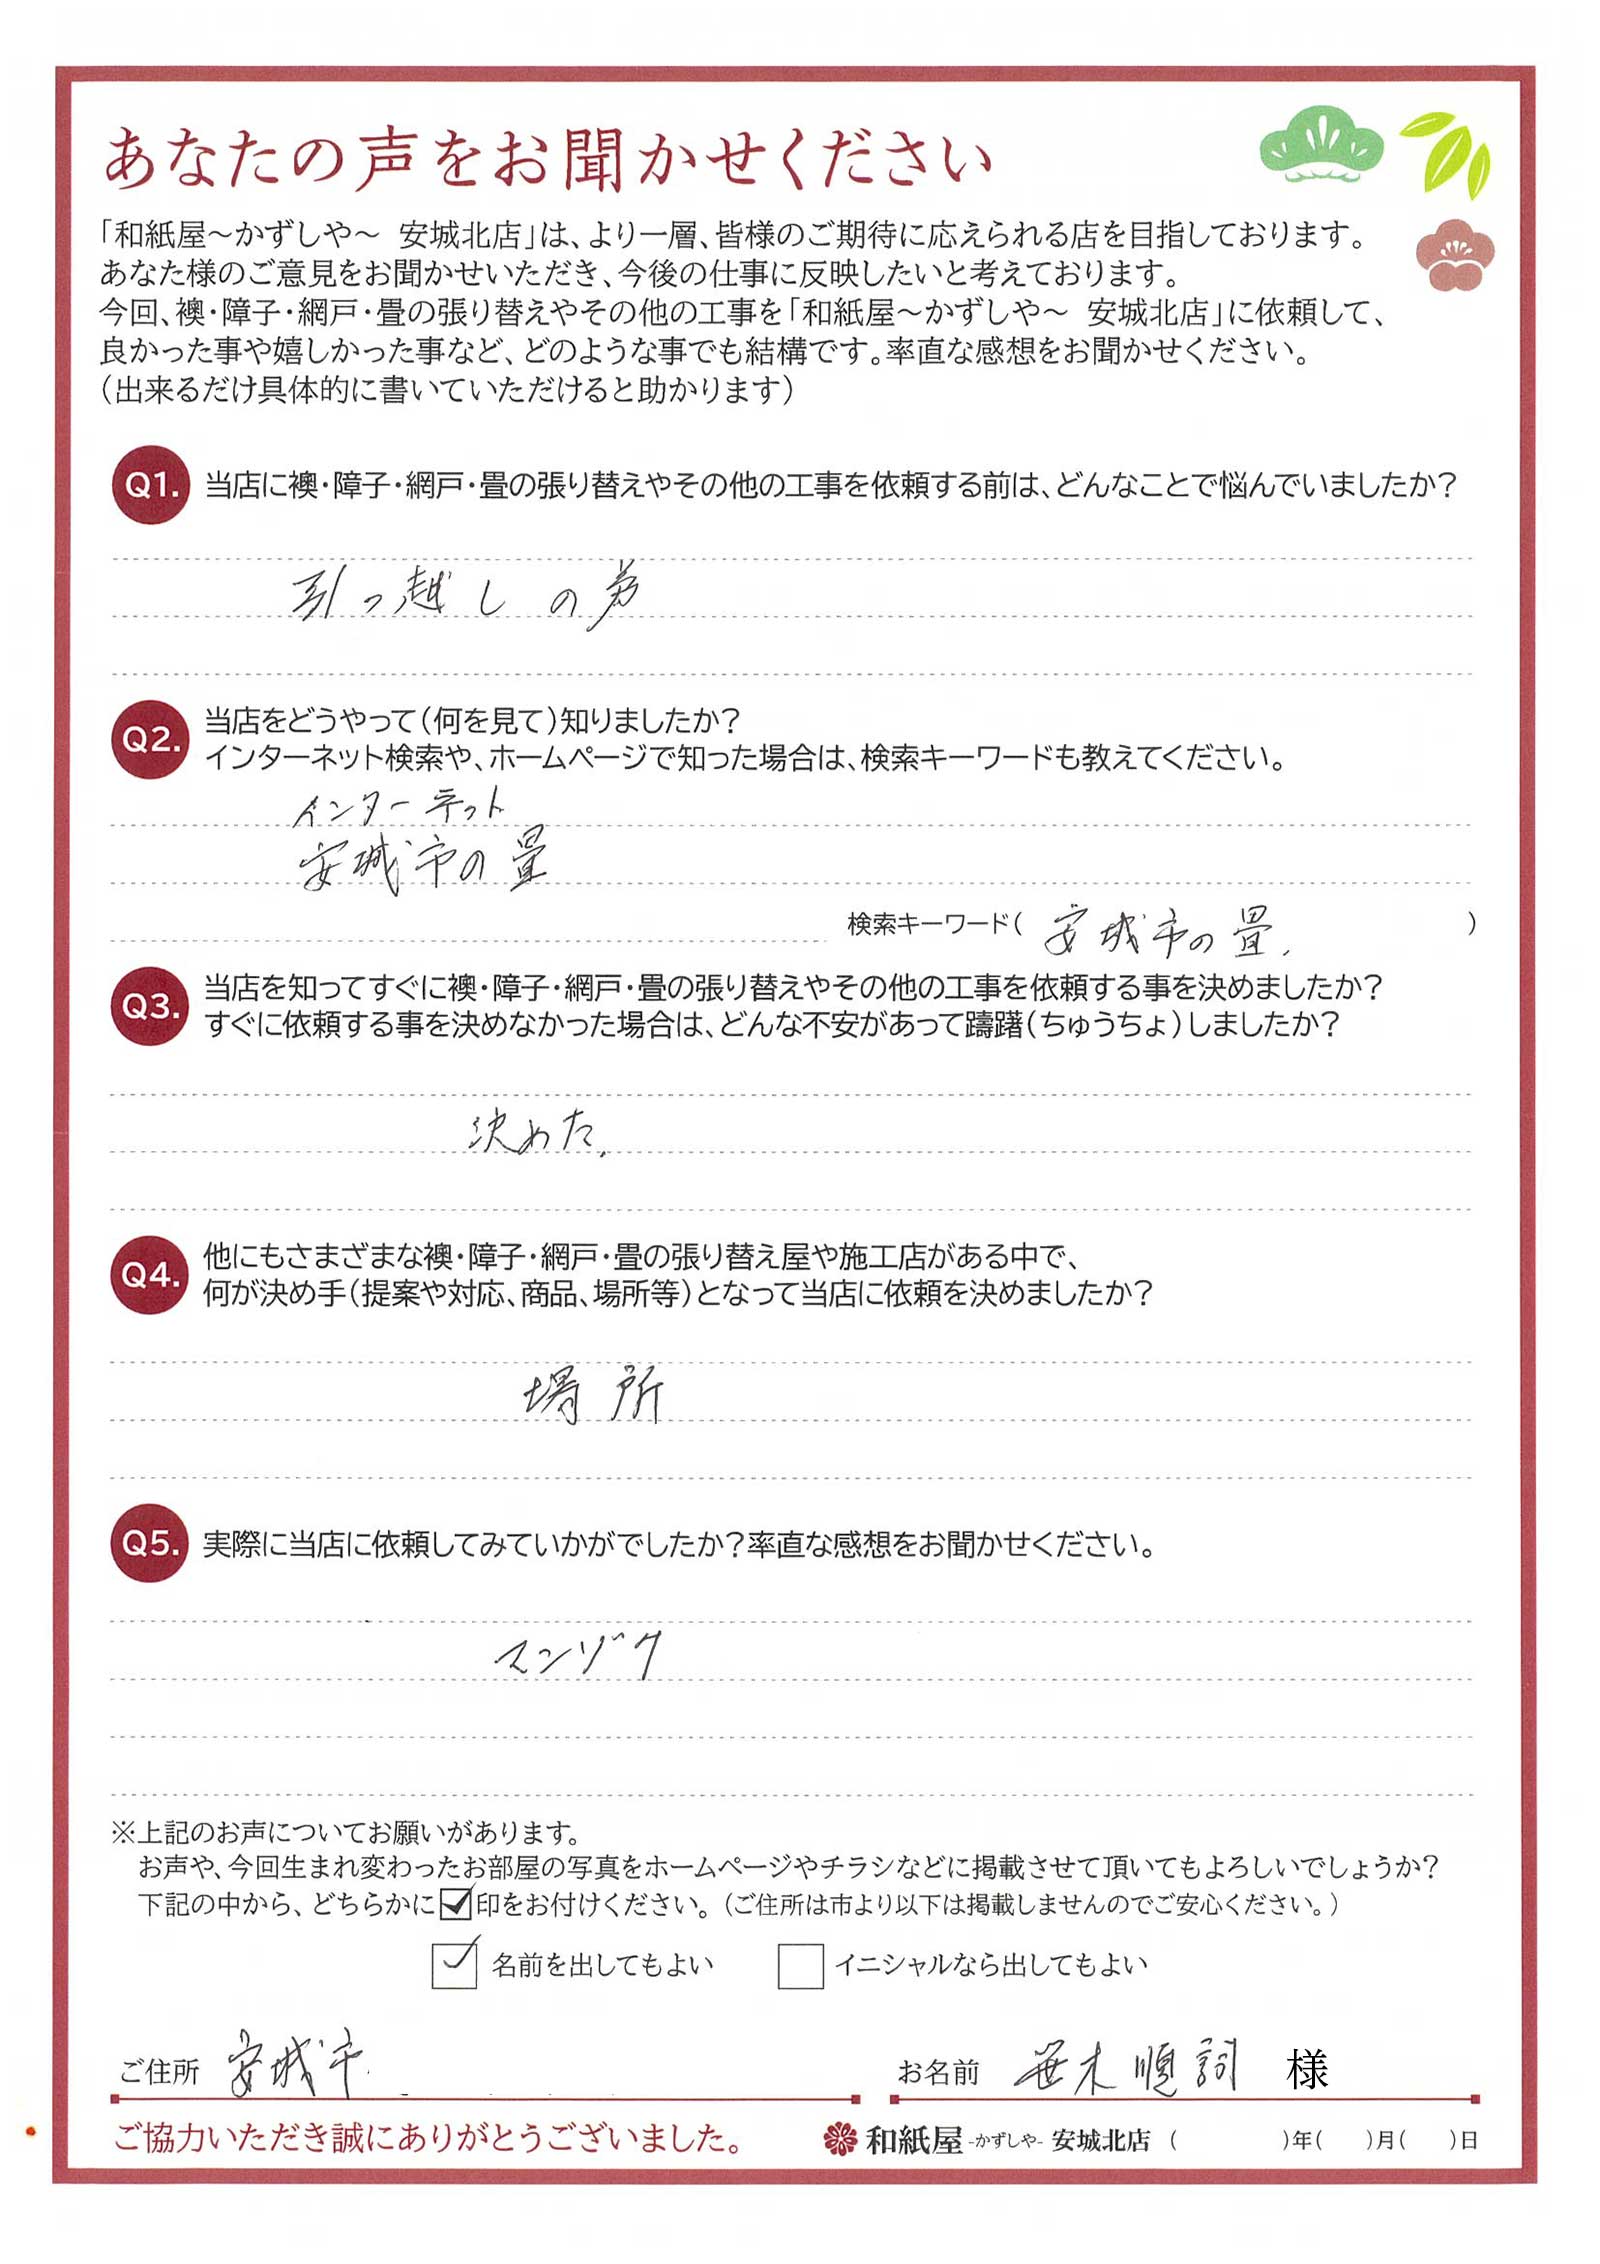 あなたの声をお聞かせください
「和紙屋～かずしや～ 安城北店」は、より一層、皆様のご期待に応えられる店を目指しております。
あなた様のご意見をお聞かせいただき、今後の仕事に反映したいと考えております。
今回、襖・障子・網戸・畳の張り替えやその他の工事を「和紙屋～かずしや～ 安城北店」に依頼して、
良かった事や嬉しかった事など、どのような事でも結構です。率直な感想をお聞かせください。
（出来るだけ具体的に書いていただけると助かります）
Q1. 当店に襖・障子・網戸・畳の張り替えやその他の工事を依頼する前は、どんなことで悩んでいましたか？
引っ越しの為
Q2. 当店をどうやって（何を見て）知りましたか？
インターネット検索や、ホームページで知った場合は、検索キーワードも教えてください。
インターネット
安城市の畳
検索キーワード（ 安城市の畳. ）
Q3. 当店を知ってすぐに襖・障子・網戸・畳の張り替えやその他の工事を依頼する事を決めましたか？
すぐに依頼する事を決めなかった場合は、どんな不安があって躊躇（ちゅうちょ）しましたか？
決めた.
Q4. 他にもさまざまな襖・障子・網戸・畳の張り替え屋や施工店がある中で、
何が決め手（提案や対応、商品、場所等）となって当店に依頼を決めましたか？
場所
Q5. 実際に当店に依頼してみていかがでしたか？率直な感想をお聞かせください。
マンゾク
※上記のお声についてお願いがあります。
お声や、今回生まれ変わったお部屋の写真をホームページやチラシなどに掲載させて頂いてもよろしいでしょうか？
下記の中から、どちらかに☑印をお付けください。（ご住所は市より以下は掲載しませんのでご安心ください。）
☑ 名前を出してもよい □ イニシャルなら出してもよい
ご住所 安城市 お名前 笹木順詞 様
ご協力いただき誠にありがとうございました。 和紙屋 -かずしや- 安城北店 （ ）年（ ）月（ ）日